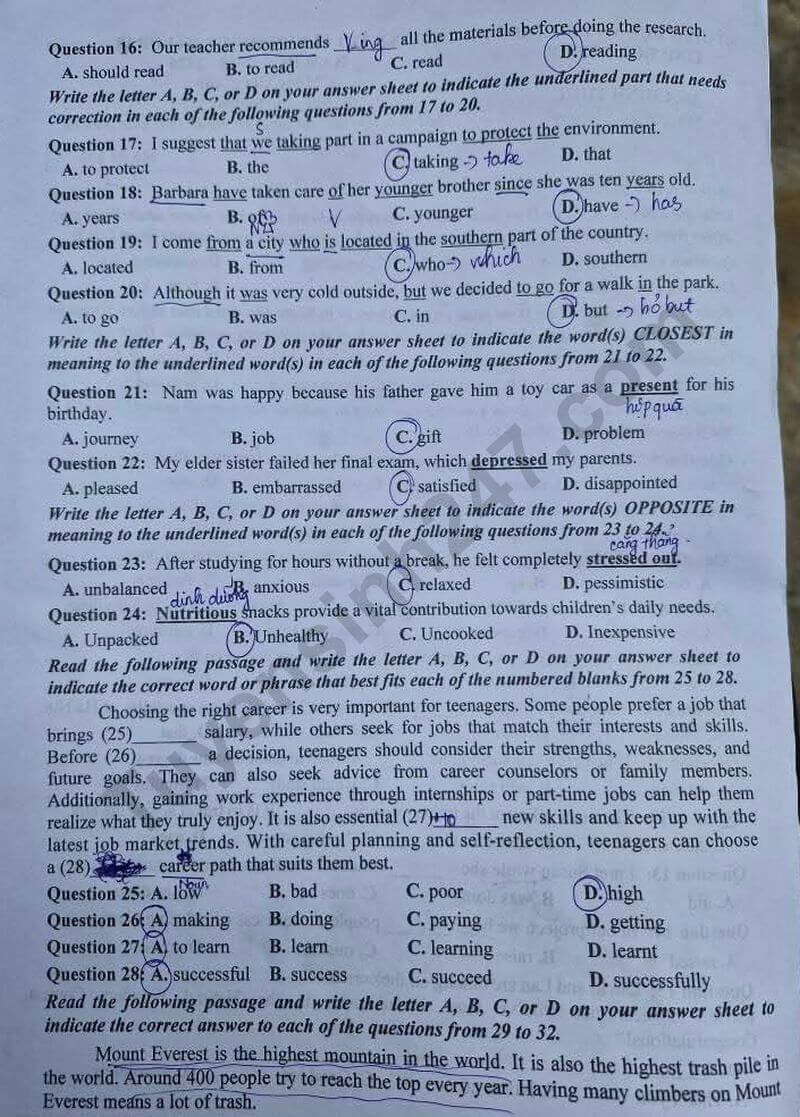 Question 16: Our teacher recommends V ing all the materials before doing the research.
A. should read B. to read C. read D. reading
Write the letter A, B, C, or D on your answer sheet to indicate the underlined part that needs
correction in each of the following questions from 17 to 20.
S
Question 17: I suggest that we taking part in a campaign to protect the environment.
A. to protect B. the C. taking → take D. that
Question 18: Barbara have taken care of her younger brother since she was ten years old.
A. years B. of V C. younger D. have → has
Question 19: I come from a city who is located in the southern part of the country.
A. located B. from C. who → which D. southern
Question 20: Although it was very cold outside, but we decided to go for a walk in the park.
A. to go B. was C. in D. but → bỏ but
Write the letter A, B, C, or D on your answer sheet to indicate the word(s) CLOSEST in
meaning to the underlined word(s) in each of the following questions from 21 to 22.
Question 21: Nam was happy because his father gave him a toy car as a present for his
birthday. hộp quà
A. journey B. job C. gift D. problem
Question 22: My elder sister failed her final exam, which depressed my parents.
A. pleased B. embarrassed C. satisfied D. disappointed
Write the letter A, B, C, or D on your answer sheet to indicate the word(s) OPPOSITE in
meaning to the underlined word(s) in each of the following questions from 23 to 24.
căng thẳng
Question 23: After studying for hours without a break, he felt completely stressed out.
A. unbalanced B. anxious C. relaxed D. pessimistic
dinh dưỡng
Question 24: Nutritious snacks provide a vital contribution towards children's daily needs.
A. Unpacked B. Unhealthy C. Uncooked D. Inexpensive
Read the following passage and write the letter A, B, C, or D on your answer sheet to
indicate the correct word or phrase that best fits each of the numbered blanks from 25 to 28.
Choosing the right career is very important for teenagers. Some people prefer a job that
brings (25)______ salary, while others seek for jobs that match their interests and skills.
Before (26)______ a decision, teenagers should consider their strengths, weaknesses, and
future goals. They can also seek advice from career counselors or family members.
Additionally, gaining work experience through internships or part-time jobs can help them
realize what they truly enjoy. It is also essential (27)______ new skills and keep up with the
latest job market trends. With careful planning and self-reflection, teenagers can choose
a (28)______ career path that suits them best.
Noun
Question 25: A. low B. bad C. poor D. high
Question 26: A. making B. doing C. paying D. getting
Question 27: A. to learn B. learn C. learning D. learnt
Question 28: A. successful B. success C. succeed D. successfully
Read the following passage and write the letter A, B, C, or D on your answer sheet to
indicate the correct answer to each of the questions from 29 to 32.
Mount Everest is the highest mountain in the world. It is also the highest trash pile in
the world. Around 400 people try to reach the top every year. Having many climbers on Mount
Everest means a lot of trash.